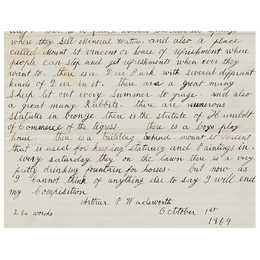 where they sell Mineral Water. and also a place
called Mount St vincent or house of refreshment where
people can stop and get refreshments when ever they
want to. there is a Deer Park with several different
kinds of Deer in it. there are a great many
Sheep let out every Summer to graze. and also
a great many Rabbits. there are numerous
statutes in bronze there is the statute of Humbolt
of Commerce of the tigress. there is a boys play
house there is a building behind mount St vincent
that is used for keeping statuary and Paintings in
every saturday they on the lawn there is a very
pretty drinking fountain for horses. but now as
I cannot think of anything else to say I will end
my Composition
Arthur P Wadsworth
2 words October 1st
1869